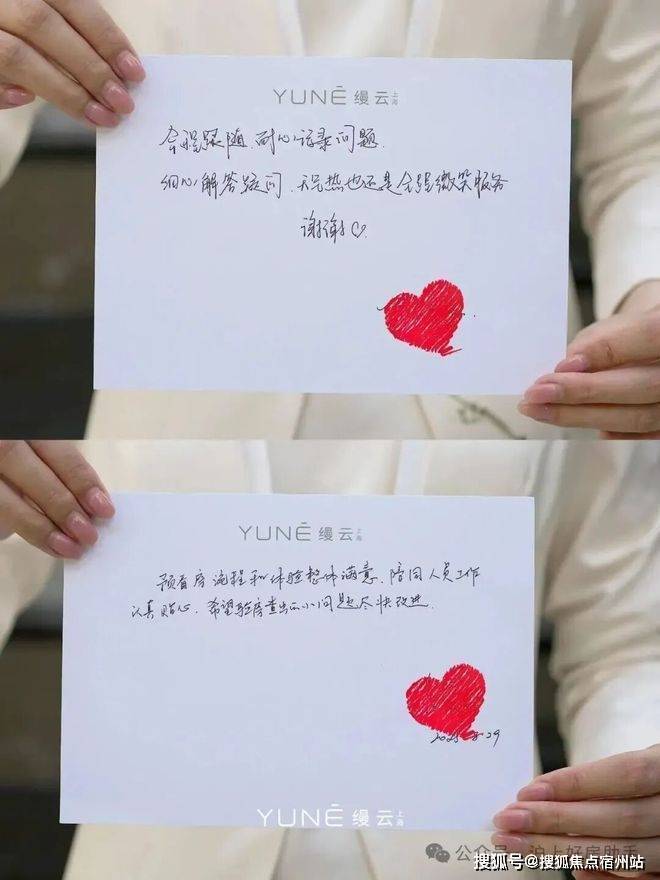 YUNÉ 缦云 上海
全程跟随、耐心记录问题、
细心解答疑问、天气热也还是全程微笑服务
谢谢♡.
YUNÉ 缦云 上海
预看房流程和体验整体满意、陪同人员工作
认真贴心、希望验房查出的小问题尽快改进.
29
YUNÉ 缦云 上海
公众号·沪上好房助手
搜狐号@搜狐焦点宿州站